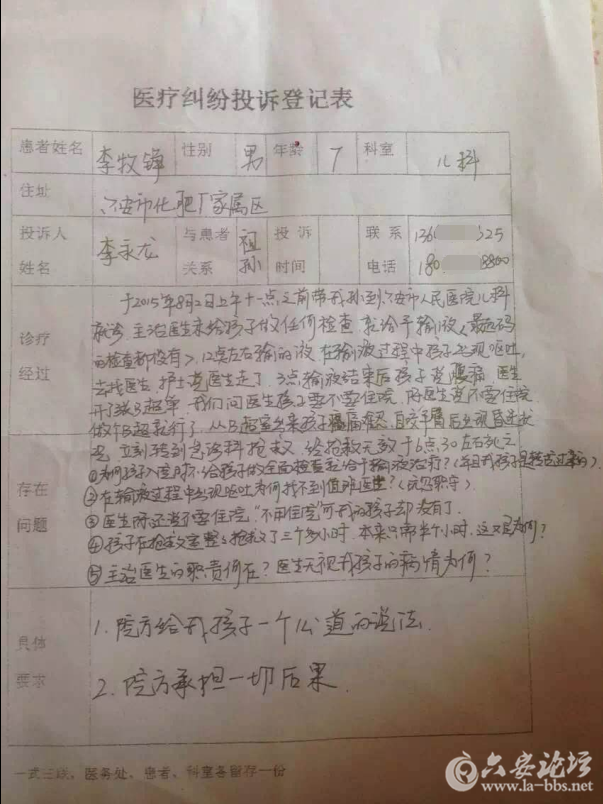 医疗纠纷投诉登记表
患者姓名 李牧锋 性别 男 年龄 7 科室 儿科
住址 六安市化肥厂家属区
投诉人姓名 李永龙 与患者关系 祖孙 投诉时间 联系电话 136 25
180 8800
诊疗经过
于2015年8月2日上午十一点之前带我孙到六安市人民医院儿科
就诊,主治医生未给孩子做任何检查,就给予输液(最起码
的检查都没有),12点左右输的液,在输液过程中孩子出现呕吐,
去找医生,护士说医生走了,3点输液结束后孩子说腹痛,医生
开了张B超单,我们问医生孩子要不要住院,两医生说不要住院
做个B超就行了,从B超室出来孩子腹痛难忍,自咬手臂后出现昏迷状
况,立刻转到急诊科抢救,经抢救无效于6点30左右死亡
存在问题
①为何孩子入院时不给孩子做全面检查就给予输液治疗?
②在输液过程中出现呕吐为何找不到值班医生?(玩忽职守)
③医生所述说了要住院,“不用住院”可我的孩子却没有了.
④孩子在抢救室整整抢救了三个多小时,本来只需半个小时,这又是为何?
⑤主治医生的职责何在?医生无视我孩子的病情为何?
具体要求
1.院方给我孩子一个公道的说法.
2.院方承担一切后果.
一式三联,医务处、患者、科室各留存一份
六安论坛
www.la-bbs.net